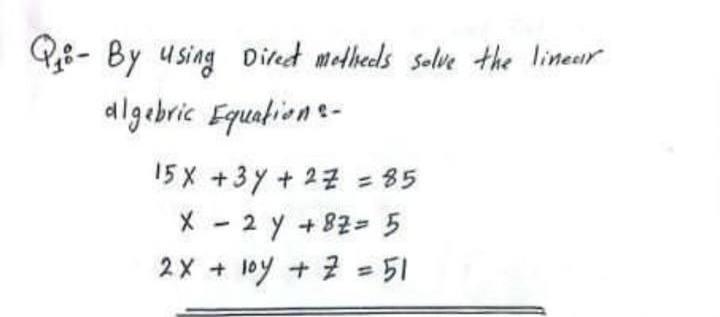 Q1:- By using Direct metheds solve the linear
algebric Equation:-
15X + 3y + 2Z = 85
X - 2y + 8Z = 5
2X + 10y + Z = 51